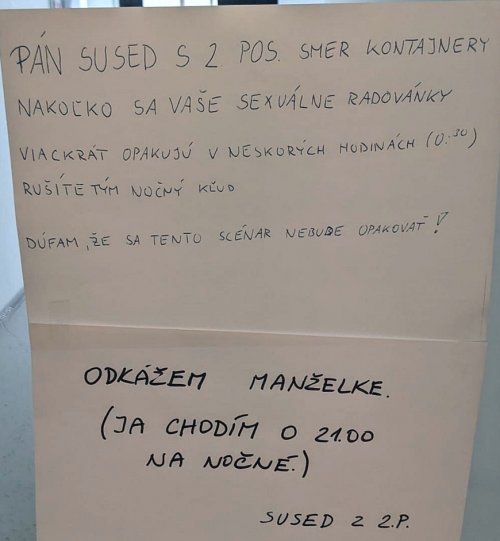 PÁN SUSED S 2 POS. SMER KONTAJNERY
NAKOĽKO SA VAŠE SEXUÁLNE RADOVÁNKY
VIACKRÁT OPAKUJÚ V NESKORÝCH HODINÁCH (0:30)
RUŠÍTE TÝM NOČNÝ KĽUD
DÚFAM, ŽE SA TENTO SCÉNAR NEBUDE OPAKOVAŤ!
ODKÁŽEM MANŽELKE.
(JA CHODÍM O 21.00
NA NOČNÉ.)
SUSED Z 2.P.